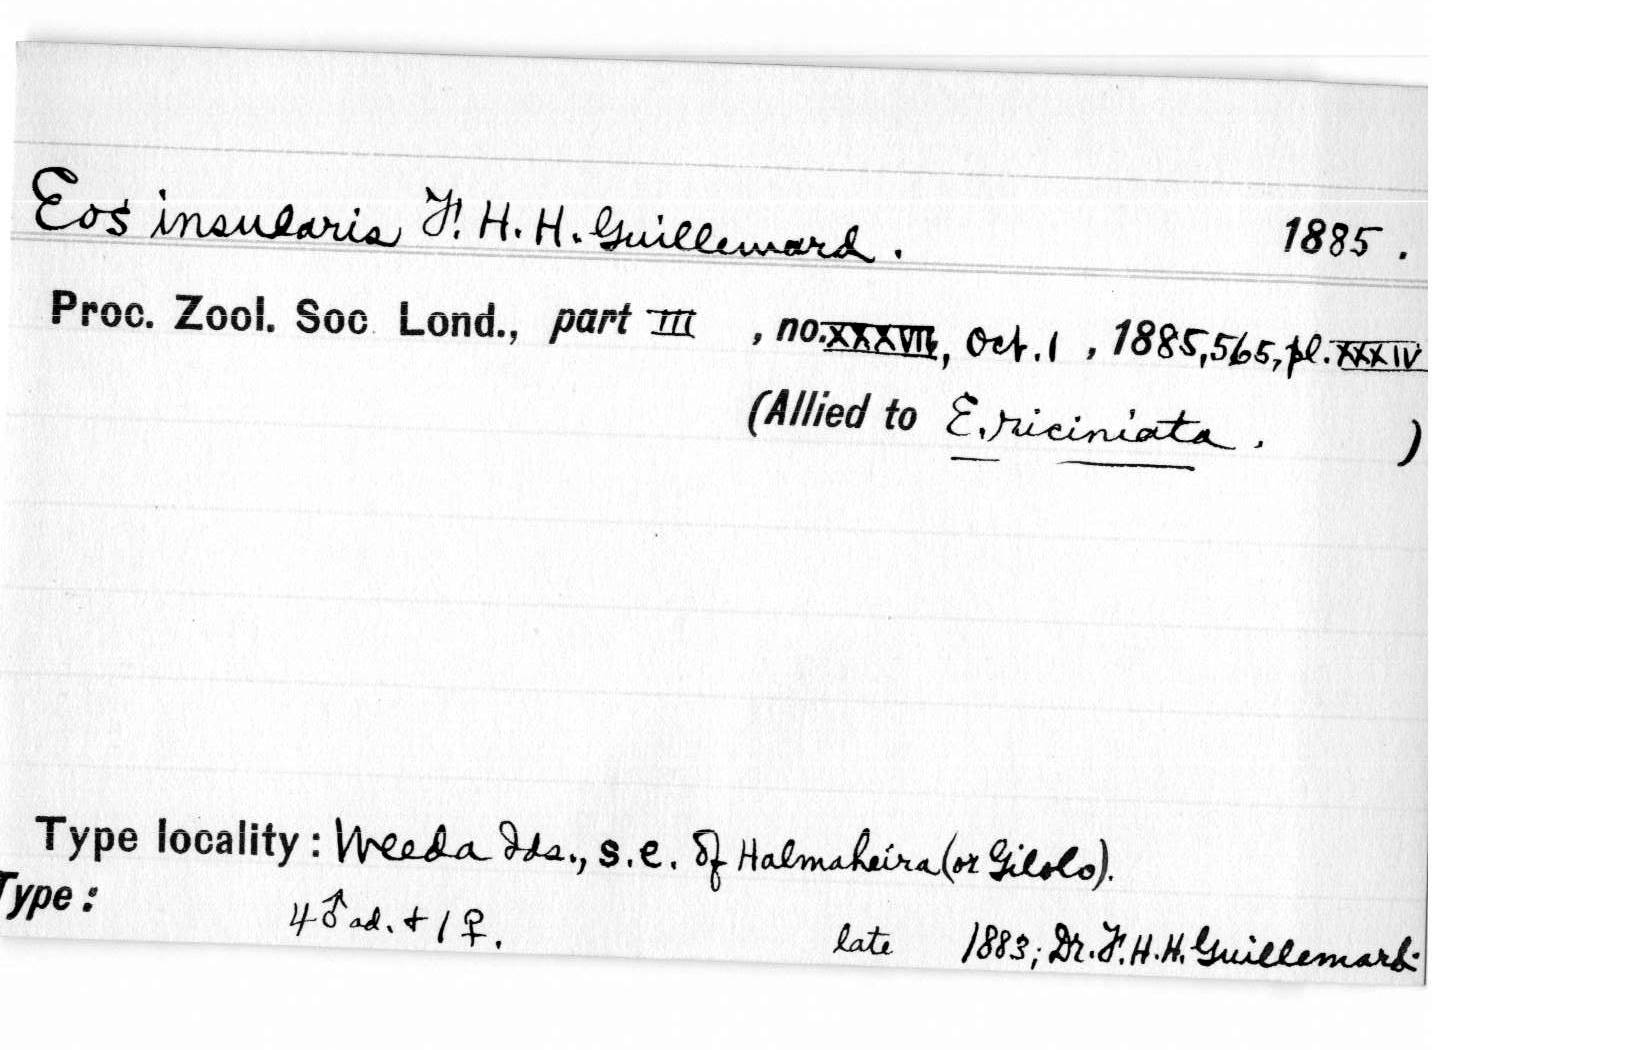 Eos insularis F. H. H. Guillemard. 1885.
Proc. Zool. Soc. Lond., part III, no. XXXVII, Oct. 1, 1885, 565, pl. XXXIV
(Allied to E. riciniata. )
Type locality: Weeda Ids., s.e. of Halmaheira (or Gilolo).
Type: 4♂ ad. + 1♀. late 1883; Dr. F. H. H. Guillemard.